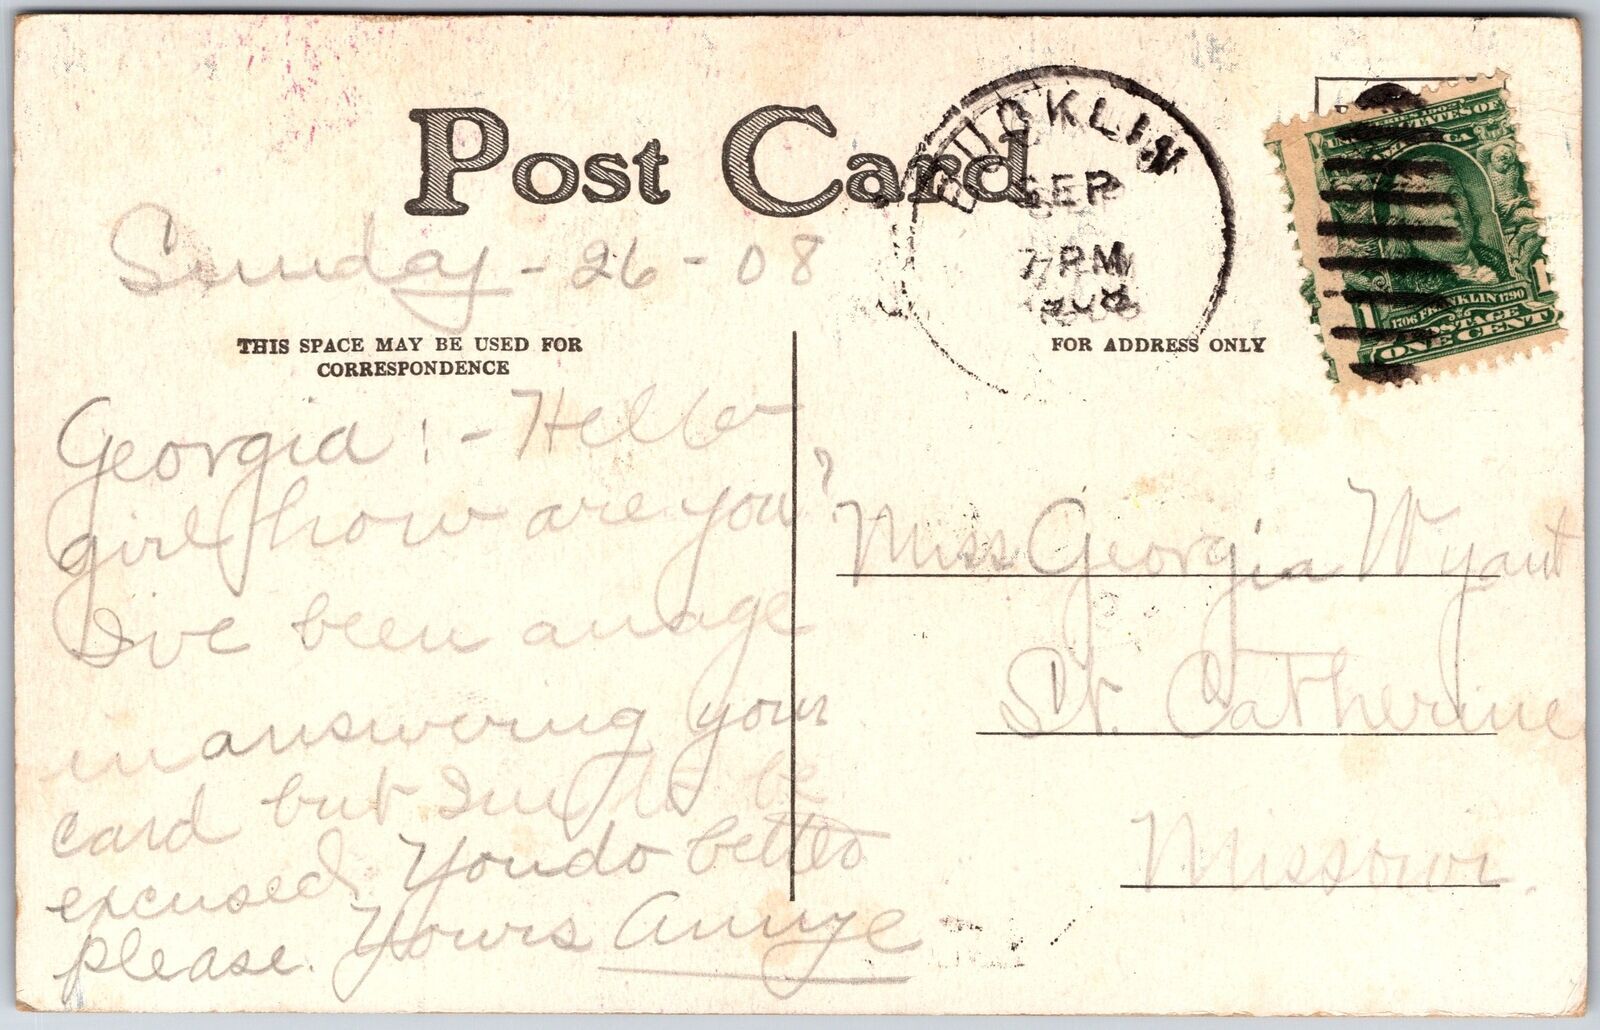 Post Card
BUCKLIN
SEP
7 PM
1908
SERIES 1902
UNITED STATES OF AMERICA
1706 FRANKLIN 1790
POSTAGE
1 1
ONE CENT
Sunday - 26 - 08
THIS SPACE MAY BE USED FOR
CORRESPONDENCE
FOR ADDRESS ONLY
Georgia! - Hello
girl how are you?
I've been an age
in answering your
card but I'm to be
excused. You do better
please. Yours Annye
Miss Georgia Wyant
St. Catherine
Missouri.